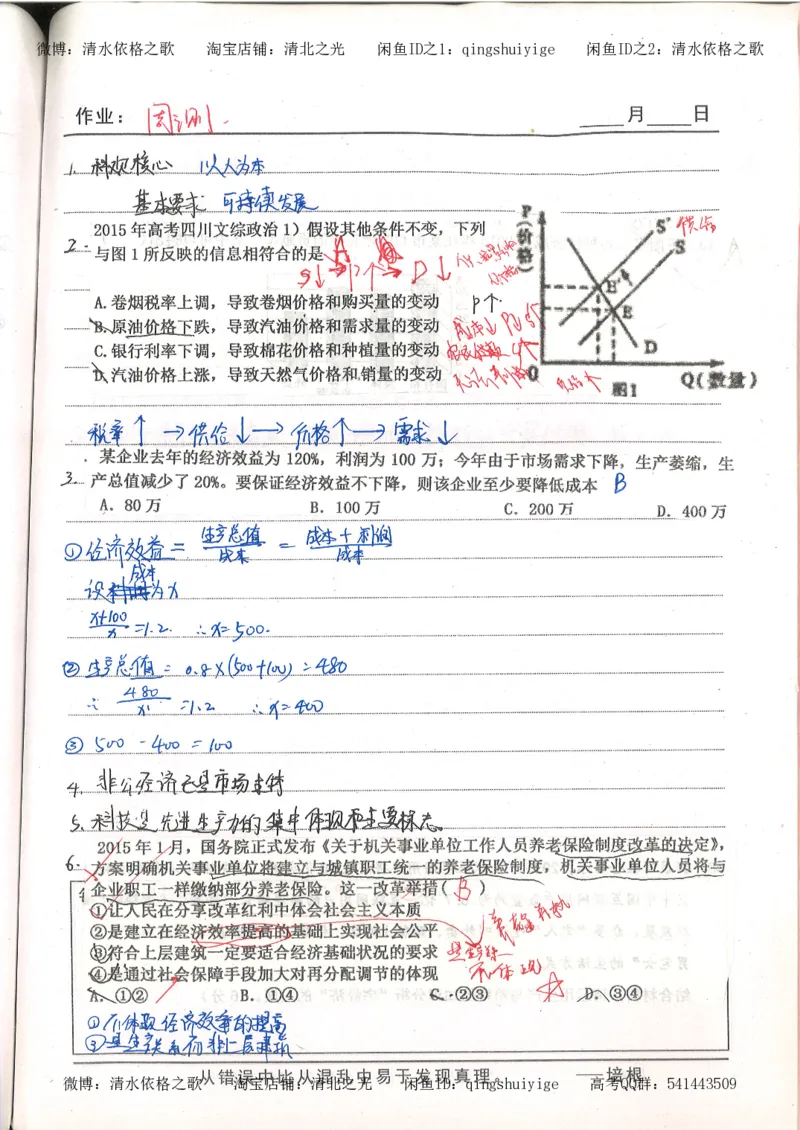 微博：清水依格之歌 淘宝店铺：清北之光 闲鱼ID之1：qingshuiyige 闲鱼ID之2：清水依格之歌
作业： 周测. 月 日
1. 科观核心 以人为本
基本要求 可持续发展
2015年高考四川文综政治1）假设其他条件不变，下列
2. 与图1所反映的信息相符合的是
A B
S↓→P↑→D↓
A.卷烟税率上调，导致卷烟价格和购买量的变动 P↑.
B.原油价格下跌，导致汽油价格和需求量的变动 成本↓ P↓ S↑
C.银行利率下调，导致棉花价格和种植量的变动
D.汽油价格上涨，导致天然气价格和销量的变动
P(价格)
S' 供给
S
E'
E
D
0
图1
Q(数量)
税率↑→供给↓→价格↑→需求↓
某企业去年的经济效益为120%，利润为100万；今年由于市场需求下降，生产萎缩，生
3. 产总值减少了20%。要保证经济效益不下降，则该企业至少要降低成本 B
A. 80万 B. 100万 C. 200万 D. 400万
①经济效益=生产总值/成本=成本+利润/成本
设成本为x
x+100/x=1.2. ∴x=500.
②生产总值=0.8×(500+100)=480
∵480/x'=1.2 ∴x=400
③500-400=100
4. 非公经济是市场主体
5. 科技是先进生产力的集中体现和主要标志。
2015年1月，国务院正式发布《关于机关事业单位工作人员养老保险制度改革的决定》，
6. 方案明确机关事业单位将建立与城镇职工统一的养老保险制度，机关事业单位人员将与
企业职工一样缴纳部分养老保险。这一改革举措( B )
①让人民在分享改革红利中体会社会主义本质
②是建立在经济效率提高的基础上实现社会公平
③符合上层建筑一定要适合经济基础状况的要求
④是通过社会保障手段加大对再分配调节的体现 不体现
A. ①② B. ①④ C. ②③ D. ③④
②不体现经济效率的提高
③是生产关系而非上层建筑
从错误中比从混乱中易于发现真理。 ——培根
微博：清水依格之歌 淘宝店铺：清北之光 闲鱼ID：qingshuiyige 高考QQ群：541443509